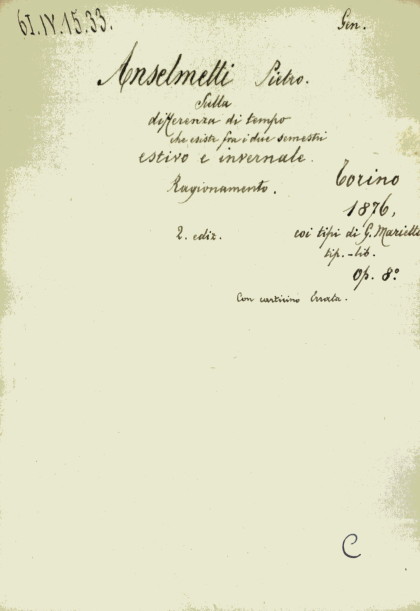 61.IV.15.33.
Gen.
Anselmetti Pietro.
Sulla
differenza di tempo
che esiste fra i due semestri
estivo e invernale.
Ragionamento.
Torino
1876,
2. ediz.
coi tipi di G. Marietti
tip.-lib.
Op. 8º
Con carticino Errata.
C